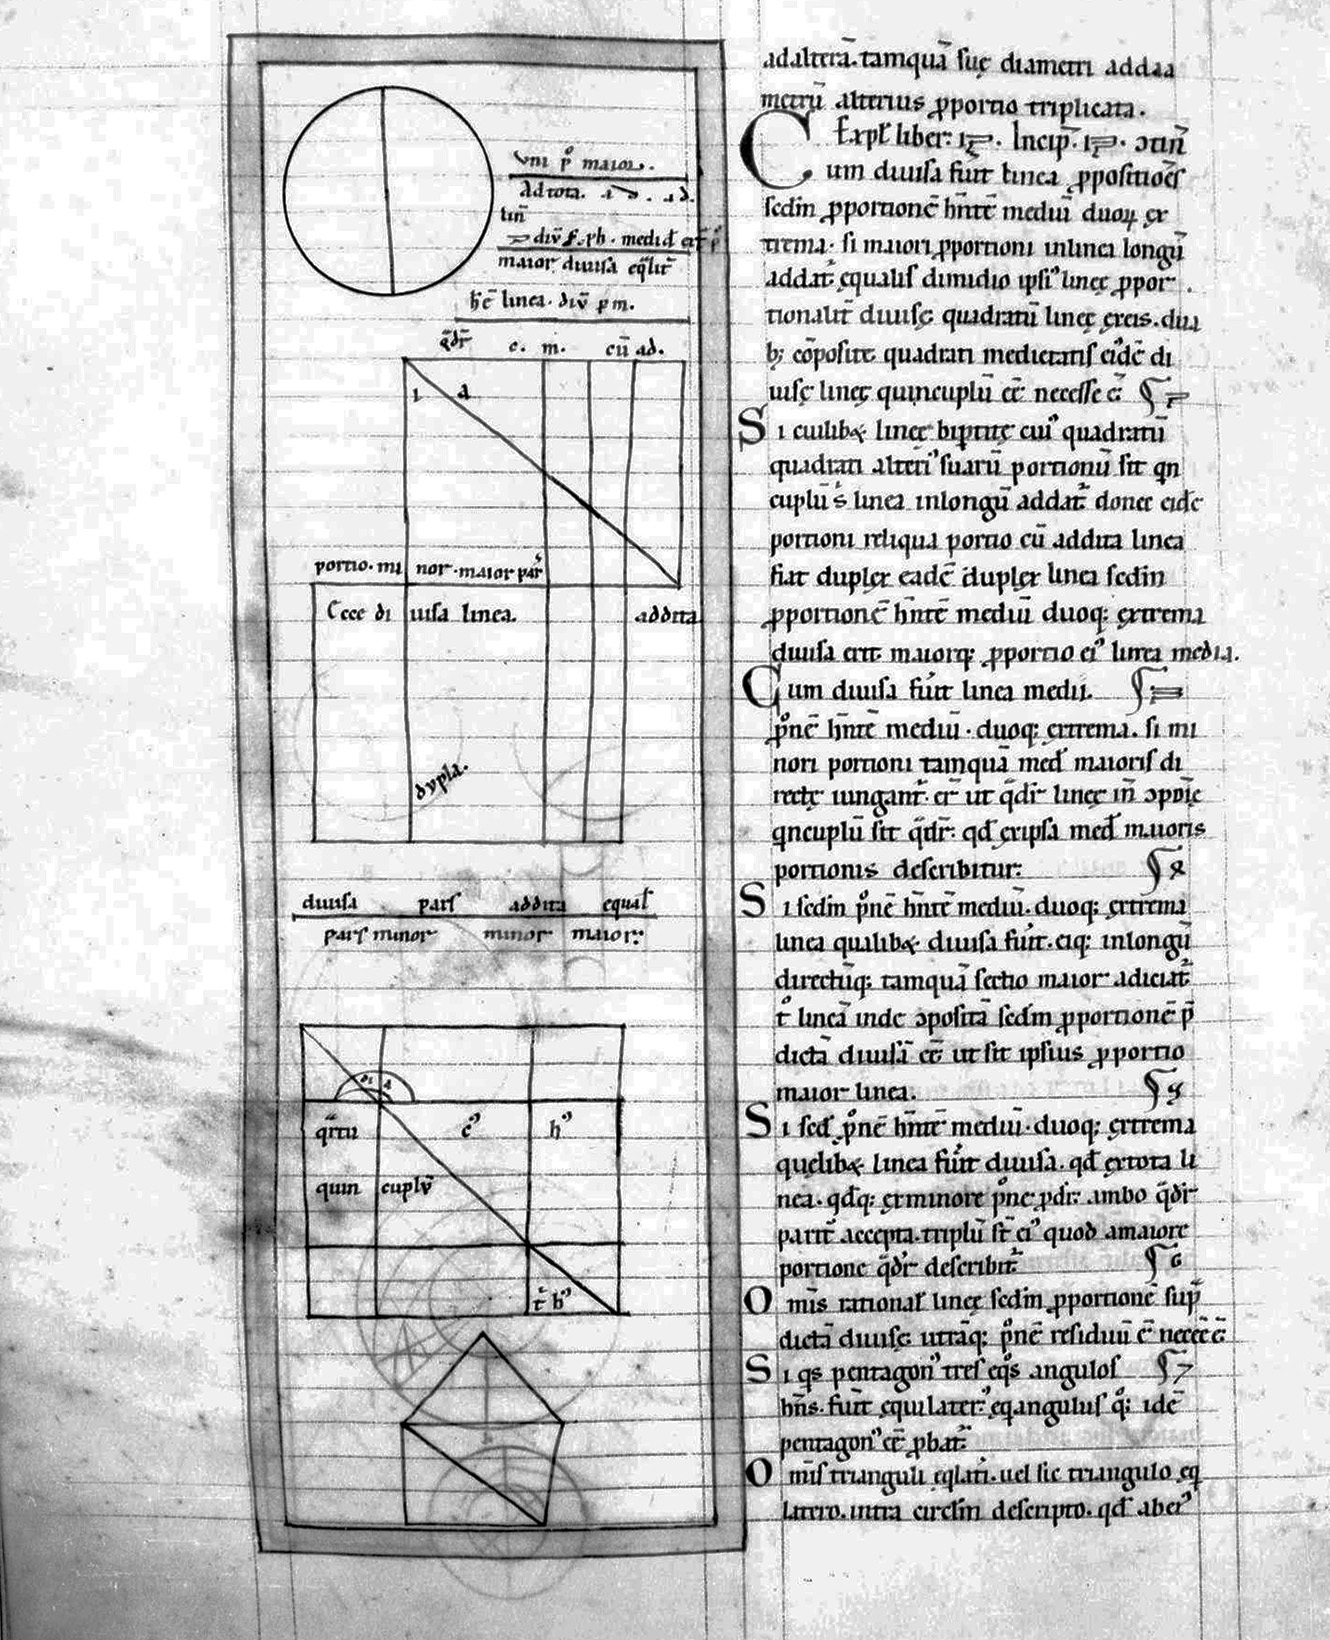 Vni p° maior.
Ad tota.
lin̄
maior diuisa eq̄lit̄
h̄c linea. diū p m.
q̄dr̄ c. m. cū ad.
portio. mi nor. maior par̄
Ecce di uisa linea. addita
dupla.
diuisa pars addita equal̄
pars minor minor maior:
q̄rtu c' h'
quin cuplū
t̄ b'
ad alterā. tamquā suę diametri addia
metrū alterius ꝓportio triplicata.
Expl̄ liber: Incip̄
Cum diuisa fuīt linea ꝓpositiōēs
sed̄m ꝓportionē hn̄tē mediū duoꝝ ex
trema. si maiori ꝓportioni in linea longū
addat̄ ęqualis dimidio ipsi' lineę ꝓpor
tionalit̄ diuisę quadratū lineę ex eis. dua
b; cōposite quadrati medietatis ei'dē di
uisę lineę quincuplū ēē necesse ē.
Si cuilibꝫ lineę bip̄titę cui' quadratū
quadrati alteri' suarū portionū sit qn
cuplū s linea in longū addat̄ donec eidē
portioni reliqua portio cū addita linea
fiat duplex eadē dupler linea sed̄m
ꝓportionē hn̄tē mediū duoq: extrema
diuisa erit maiorq: ꝓportio ei' linea media.
Cum diuisa fuīt linea medii.
p°nē hn̄tē mediū. duoq: extrema. si mi
nori portioni tamquā med̄ maioris di
rectę iungant̄. er̄ ut q̄dr̄ lineę in̄ ɔposię
qncuplū sit q̄dr̄: qd̄ ex ipsa med̄ maioris
portionis describitur:
Si sed̄m p°nē hn̄tē mediū. duoq: extrema
linea qualibꝫ diuisa fuīt. eiq: in longū
directūq: tamquā sectio maior adiciat̄
t° lineā inde ɔpositā sed̄m ꝓportionē p̄
dictā diuisā ēē ut sit ipsius ꝓportio
maior linea.
Si sed̄ p°nē hn̄tē mediū. duoq: extrema
quęlibꝫ linea fuīt diuisa. qd̄ ex tota li
nea. qd̄q: ex minore p°ne pdr̄: ambo q̄dr̄
parit̄ accepta. triplū st̄ ei' quod a maiore
portione q̄dr̄ describit̄
Omīs rational̄ lineę sed̄m ꝓportionē sup̄
dictā diuisę utrāq: p°nē residuū ē necēē ē.
Si qs pentagon' tres eq̄s angulos
hn̄s. fuīt ęquilater: ęqangulus q°: idē
pentagon' ēē ꝓbat̄:
Omīs trianguli eqlat̄i. uel sic triangulo eq
latero. intra circlm̄ descripto. qd̄ ab ei'